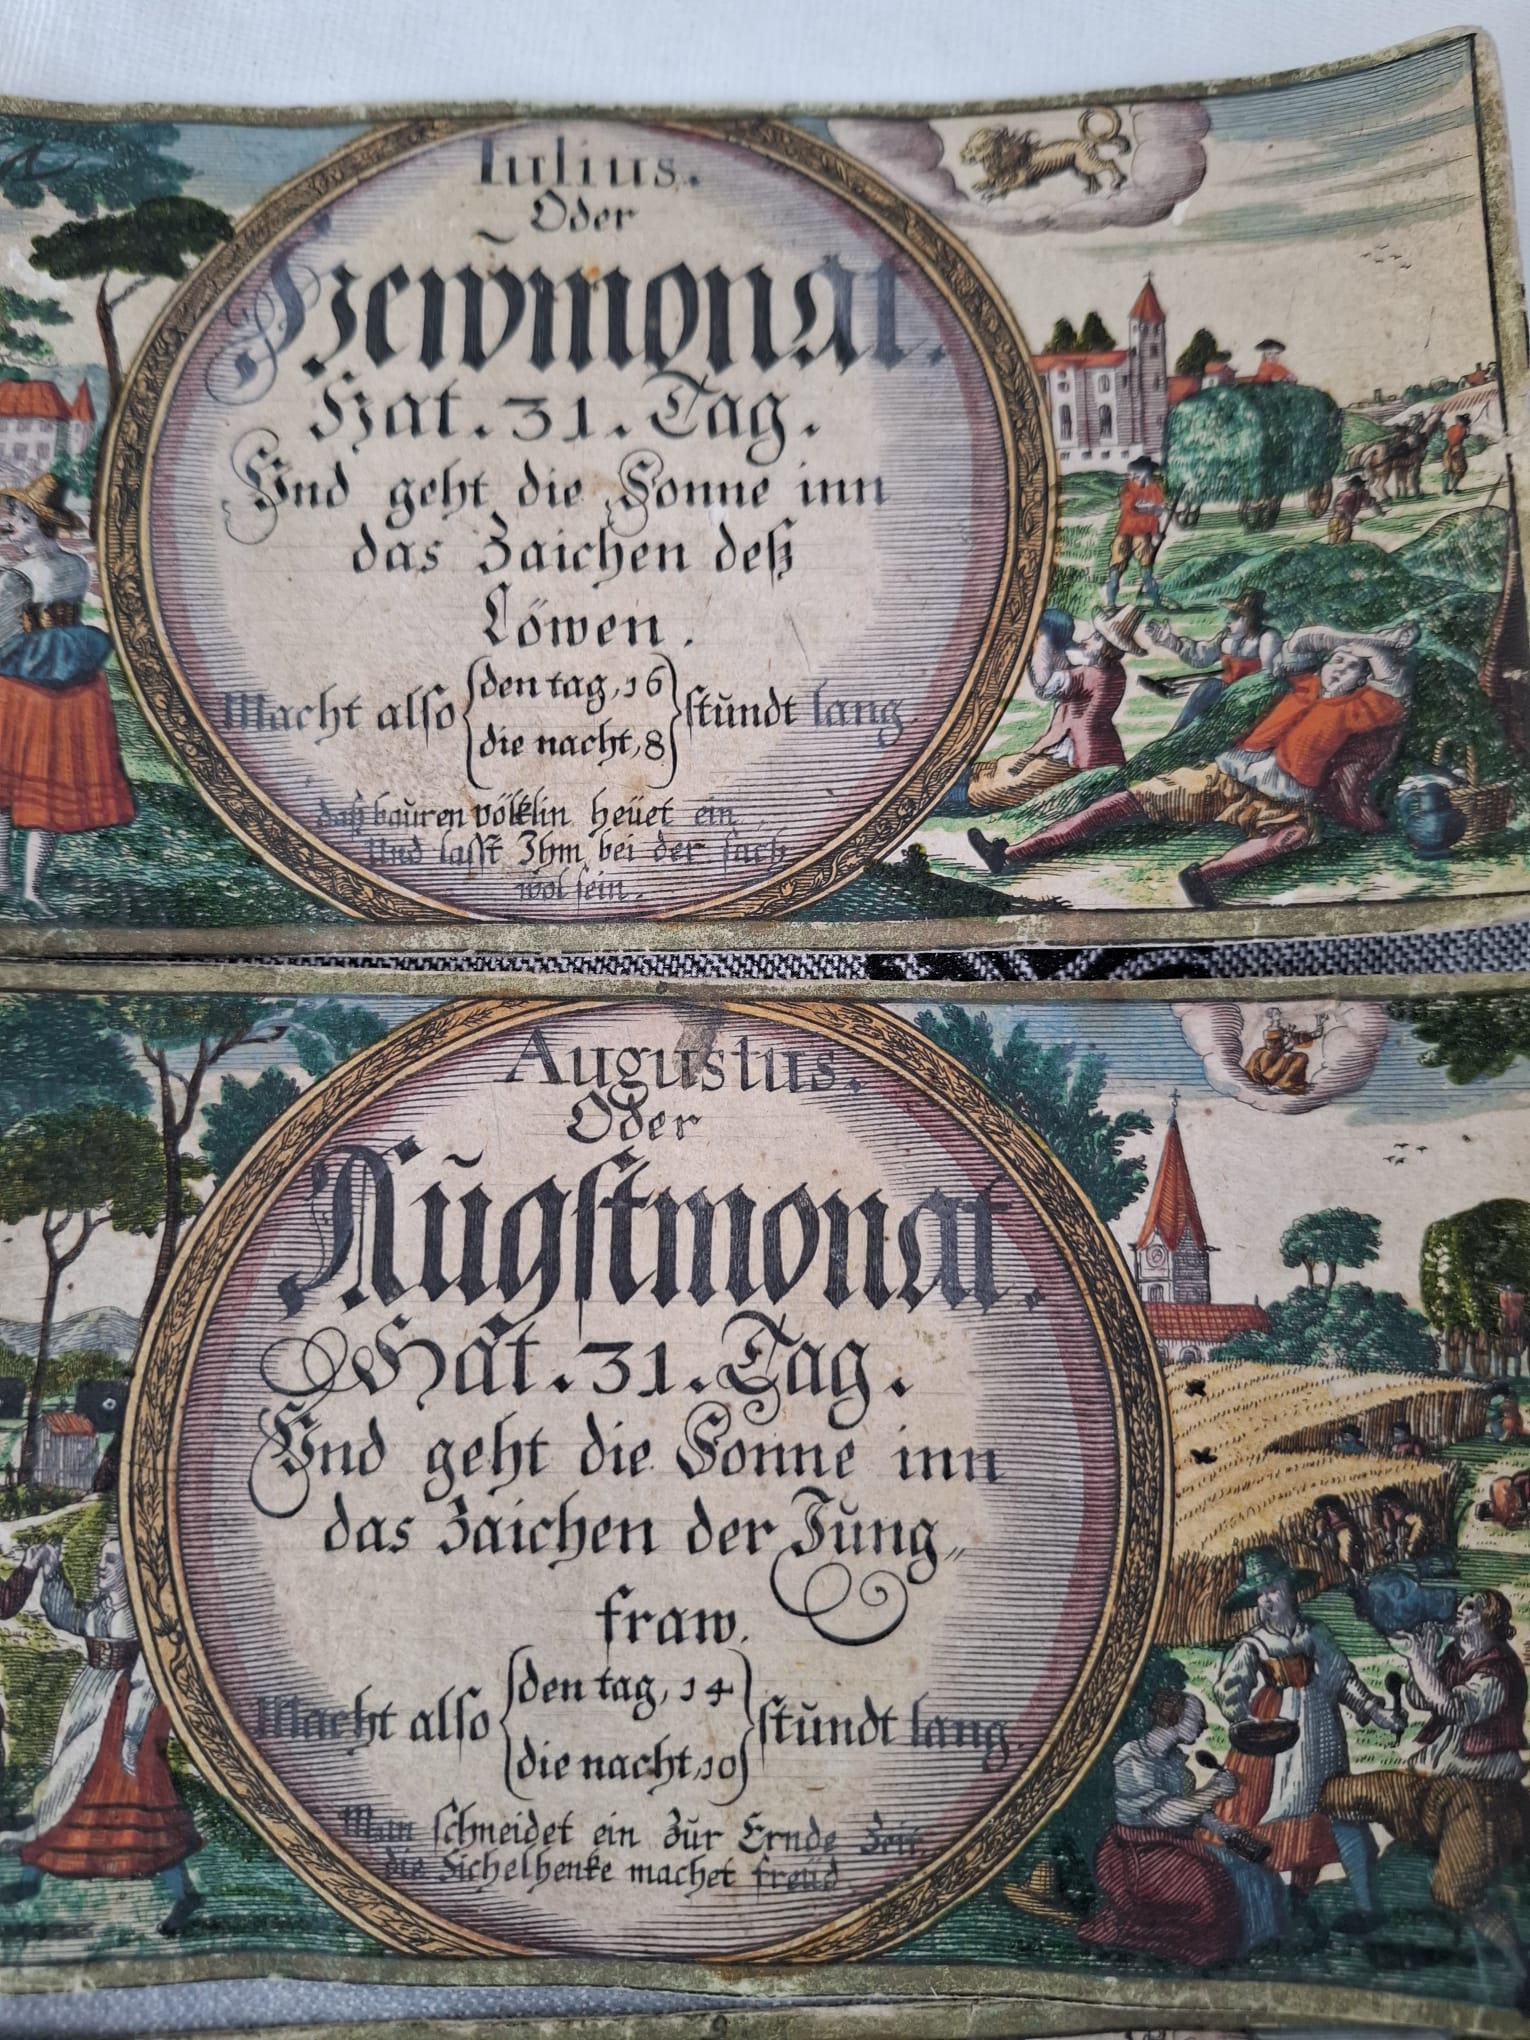 Iulius.
Oder
Hewmonat.
Hat. 31. Tag.
Vnd geht die Sonne inn
das Zaichen deß
Löwen.
Macht also {den tag, 16
die nacht, 8} stŭndt lang.
daß bauren völklin heüet ein,
Und lasst Ihm bei der sach
wol sein.
Augustus.
Oder
Aŭgstmonat.
Hat. 31. Tag.
Vnd geht die Sonne inn
das Zaichen der Jŭng„
fraw.
Macht also {den tag, 14
die nacht, 10} stŭndt lang.
Man schneidet ein zŭr Ernde Zeit,
die Sichelhenke machet freüd.
9